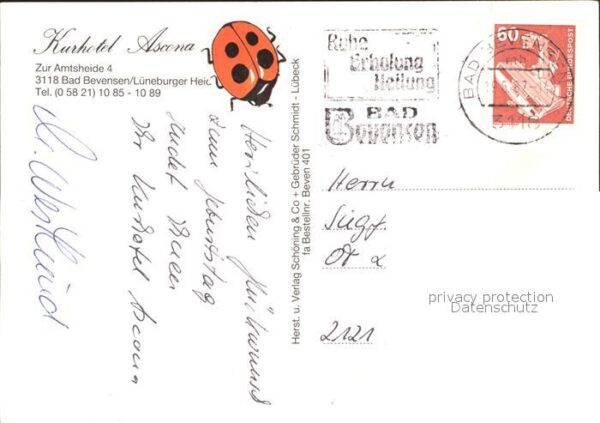 Kurhotel Ascona
Zur Amtsheide 4
3118 Bad Bevensen/Lüneburger Heide
Tel. (0 58 21) 10 85 - 10 89
Herzlichen Glückwunsch
zum Geburtstag
sendet Ihnen
Ihr Kurhotel Ascona
Herst. u. Verlag Schöning & Co + Gebrüder Schmidt - Lübeck
fa Bestellnr. Beven 401
Ruhe
Erholung
Heilung
BAD
Bevensen
BAD BEVENSEN
3118
60
DEUTSCHE BUNDESPOST
Herrn
2121
privacy protection
Datenschutz